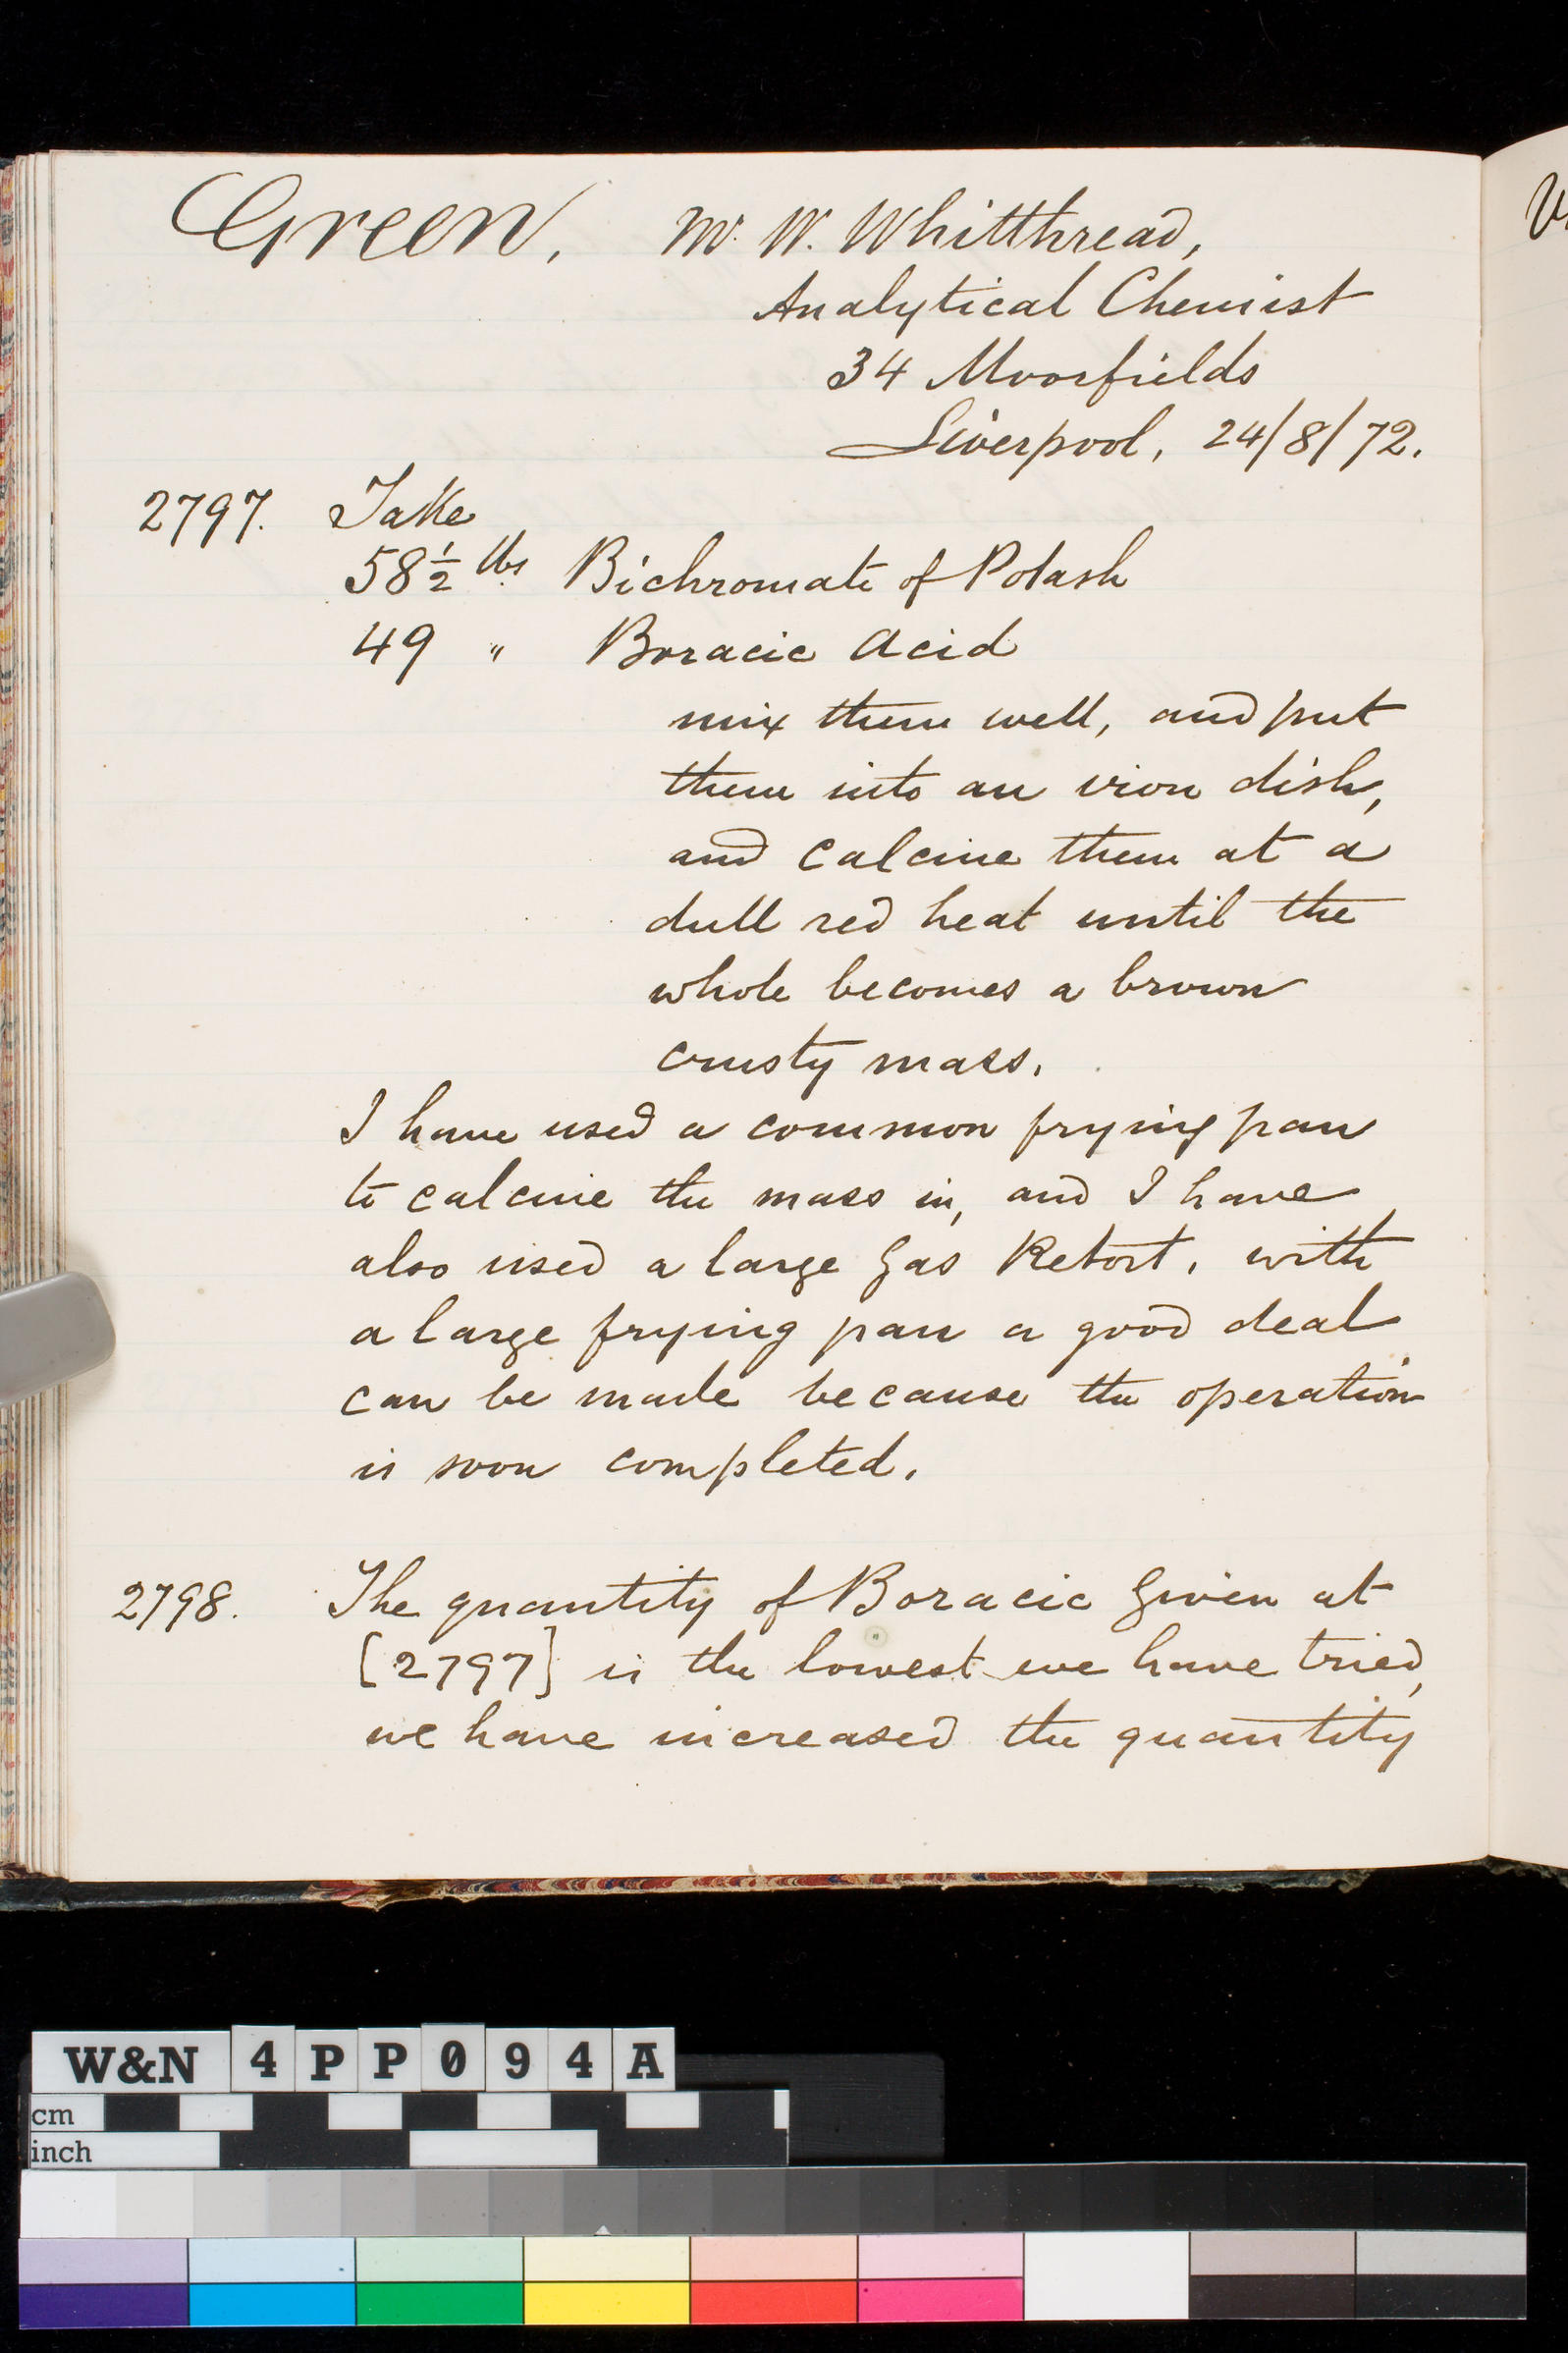 Green. Mr. W. Whitthread,
Analytical Chemist
34 Moorfields
Liverpool, 24/8/72.
2797. Take
58 1/2 lbs Bichromate of Potash
49 " Boracic Acid
mix them well, and put
them into an iron dish,
and calcine them at a
dull red heat until the
whole becomes a brown
crusty mass.
I have used a common frying pan
to calcine the mass in, and I have
also used a large Gas Retort. with
a large frying pan a good deal
can be made because the operation
is soon completed.
2798. The quantity of Boracic Given at
[2797] is the lowest we have tried,
we have increased the quantity
W&N 4PP094A
cm
inch